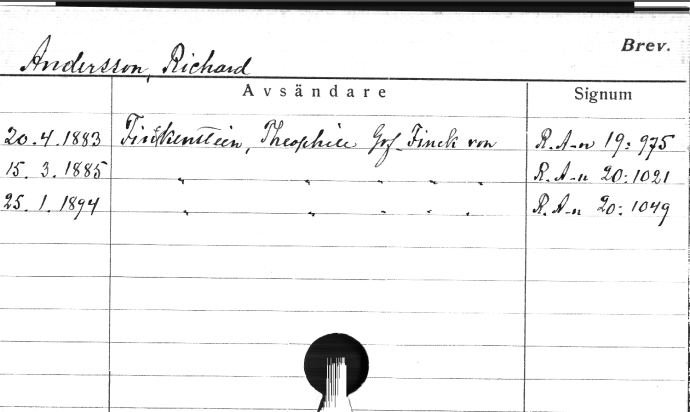 Brev.
Andersson, Richard
Avsändare Signum
20.4.1883 Finckenstein, Theophile Grf Finck von R.A-n 19:975
15. 3. 1885 " " " " " R.A-n 20:1021
25. 1. 1894 " " " " " R.A-n 20:1049